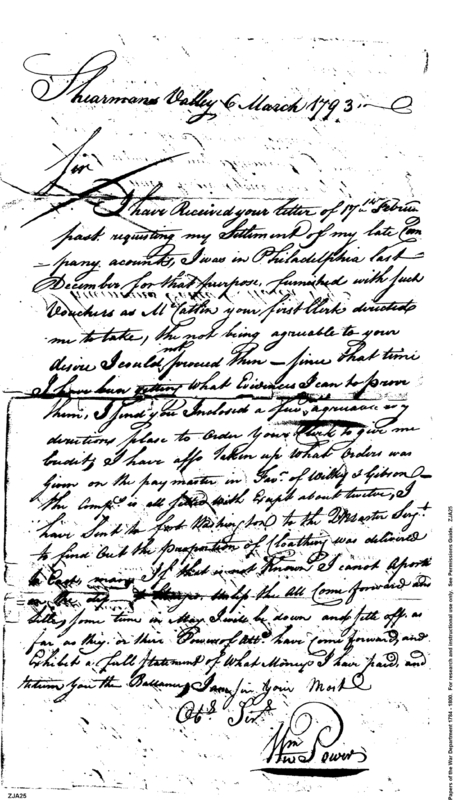 Shearmans Valley 6 March 1793
Sir
I have Received your letter of 17th Febru
past, requesting my Settlement of my late Com
pany acounts, I was in Philadelphia last
December for that purpose, furnished with such
Vouchers as Mr Catlin your first Clerk directed
me to take, the not being agreuable to your
desire I could not proceed then – since that time
I have been what Evidences I can to prove
them, I send you Inclosed a few,
directions please to order your Clerk to give me
Credit, I have also Taken up what orders was
given on the pay master in of Wilky & Gibson
the Compy is all with Except about twelve, I
have Sent to fort to the Sergt
to find out the proportion of Cloathing was delivered
to Each man, If that is not Known I canot Aporti
the All Come forward and
some time in May I will be down and setle off as
far as they or their Powers of Atty have come forward, and
Exhibit a full Statement of What Money I have paid, and
Return you the Ballance, I am Sir your Most
Obt Sert
Wm Power
ZJA25
Papers of the War Department 1784 - 1800. For research and instructional use only. See Permissions Guide. ZJA25